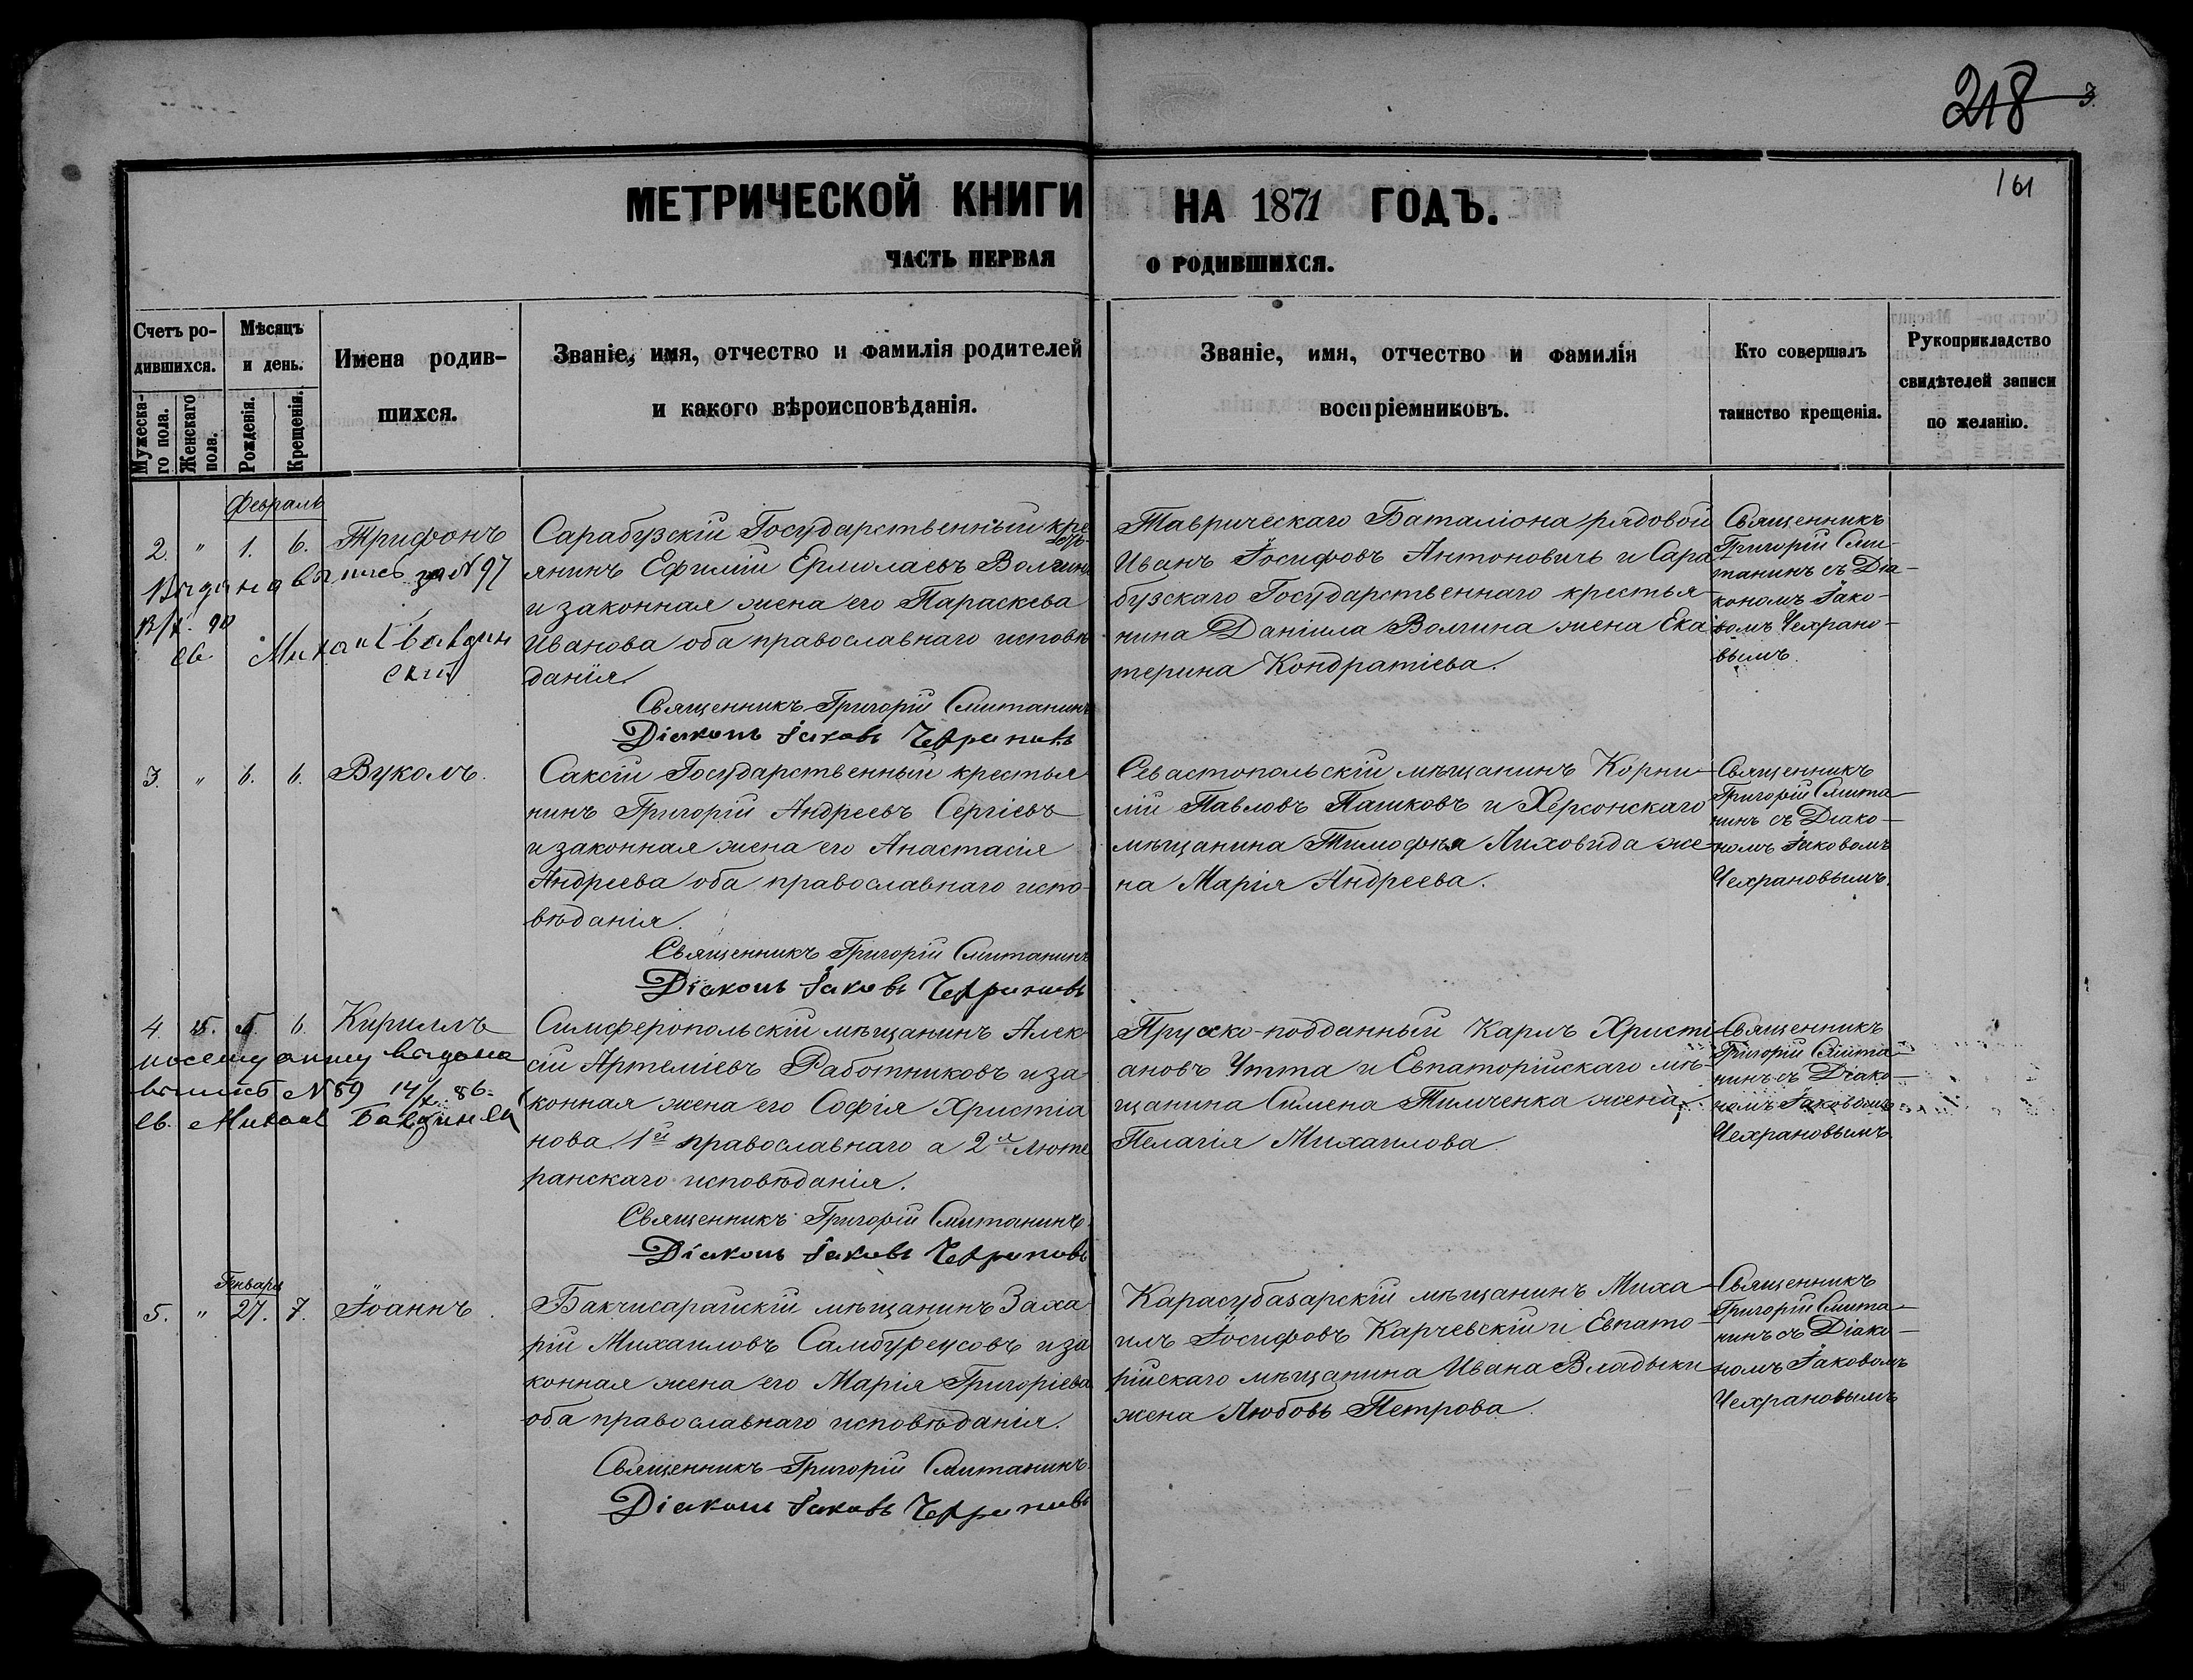 218
3.
161
МЕТРИЧЕСКОЙ КНИГИ НА 1871 ГОДЪ.
ЧАСТЬ ПЕРВАЯ О РОДИВШИХСЯ.
Счетъ ро-
дившихся.
Мужеска-
го пола.
Женскаго
пола.
Мѣсяцъ
и день.
Рожденія.
Крещенія.
Имена родив-
шихся.
Званіе, имя, отчество и фамилія родителей
и какого вѣроисповѣданія.
Званіе, имя, отчество и фамилія
воспріемниковъ.
Кто совершалъ
таинство крещенія.
Рукоприкладство
свидѣтелей записи
по желанію.
Февраль
2. " 1. 6. Трифонъ
Выдана выпись за № 97
св Михаил
Сарабузскій Государственный кре
янинъ Ефимій Ермилаевъ Волчинъ
и законная жена его Параскева
Иванова оба православнаго исповѣ
данія.
Священникъ Григорій Смитанинъ
Діаконъ Іаковъ Чехрановъ
Таврическаго Баталіона рядовой
Иванъ Іосифовъ Антоновичь и Сара
бузскаго Государственнаго крестья-
нина Даніила Волчина жена Ека
терина Кондратіева.
Священникъ
Григорій Сми-
танинъ съ Діа-
кономъ Іако-
вомъ Чехрано-
вымъ.
3. " 6. 6. Вуколъ.
Сакскій Государственный крестья
нинъ Григорій Андреевъ Сергіевъ
и законная жена его Анастасія
Андреева оба православнаго испо-
вѣданія.
Священникъ Григорій Смитанинъ
Діаконъ Іаковъ Чехрановъ
Севастопольскій мѣщанинъ Корни-
лій Павловъ Пашковъ и Херсонскаго
мѣщанина Тимофѣя Лиховида же-
на Марія Андреева.
Священникъ
Григорій Смита-
нинъ съ Діако-
номъ Іаковомъ
Чехрановымъ.
4. 6. Кириллъ
посему акту выдана
выпись № 59 86.
св. Михаил
Симферіопольскій мѣщанинъ Алек-
сій Артеміевъ Работниковъ и за-
конная жена его Софія Христіа
нова. 1й православнаго а 2я люте
ранскаго исповѣданія.
Священникъ Григорій Смитанинъ.
Діаконъ Іаковъ Чехрановъ
Прусско-подданный Карлъ Христі-
ановъ Утта и Евпаторійскаго мѣ-
щанина Симена Тимченка жена
Пелагія Михаилова
Священникъ
Григорій Смита-
нинъ съ Діако-
номъ Іаковомъ
Чехрановымъ.
Генваря
5. " 27. 7. Іоаннъ.
Бакчисарайскій мѣщанинъ Заха
рій Михаиловъ Самбурсусовъ и за
конная жена его Марія Григоріева
оба православнаго исповѣданія.
Священникъ Григорій Смитанинъ.
Діаконъ Іаковъ Чехрановъ
Карасубазарскій мѣщанинъ Миха-
илъ Іосифовъ Карчевскій и Евпато-
рійскаго мѣщанина Ивана Владыки
жена Любовь Петрова.
Священникъ
Григорій Смита-
нинъ съ Діако-
номъ Іаковомъ
Чехрановымъ